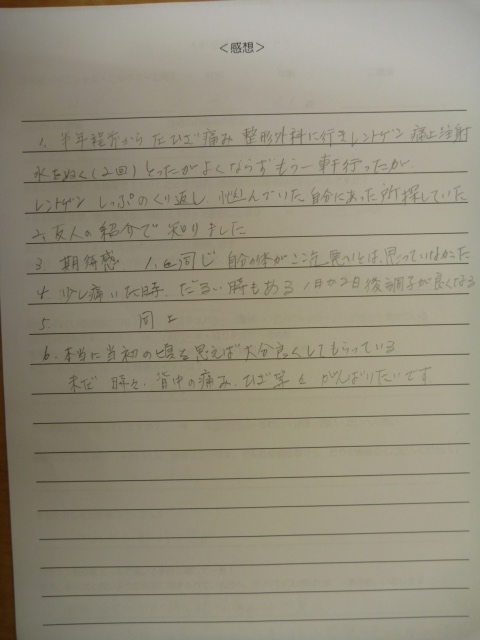 <感想>
1. 半年程前から左ひざ痛み 整形外科に行きレントゲン 痛止注射
水をぬく(2回)とったがよくならずもう一軒行ったが
レントゲン しっぷのくり返し 悩んでいた 自分にあった所探していた
2. 友人の紹介で知りました
3 期待感 1.と同じ 自分の体がここ迄悪いとは思っていなかった
4 少し痛いた時、だるい時もある 1日か2日後調子が良くなる
5. 同上
6. 本当に当初の頃を思えば大分良くしてもらっている
まだ時々、背中の痛み、ひざ等と がんばりたいです